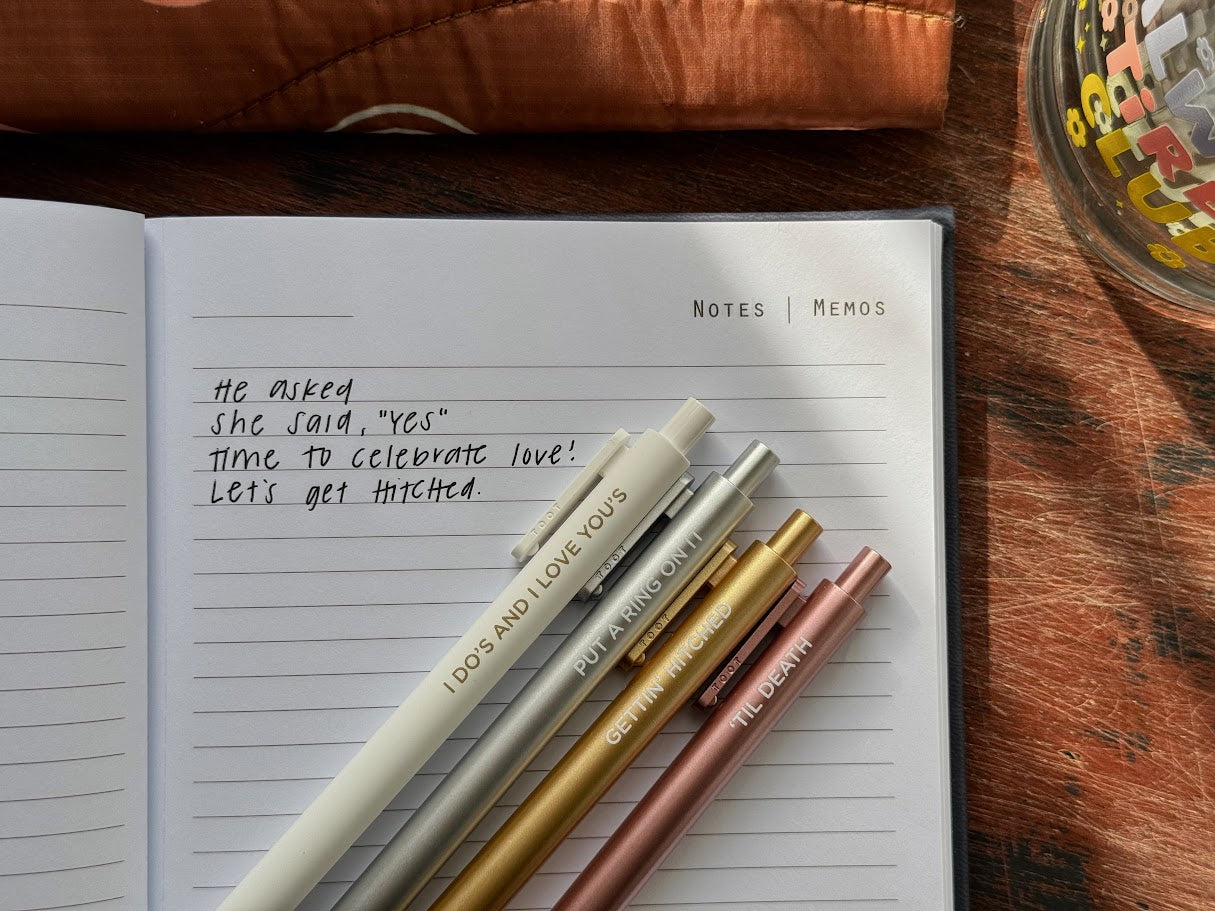 NOTES | MEMOS
He asked
she said, "Yes"
Time to celebrate love!
Let's get HitcHed.
I DO'S AND I LOVE YOU'S
PUT A RING ON IT
GETTIN' HITCHED
'TIL DEATH
TOOT
TOOT
TOOT
TOOT
TiRED
CLUB